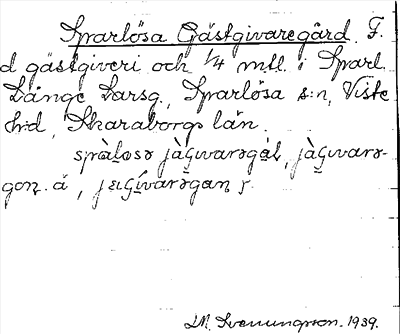 Sparlösa Gästgivaregård. F.
d gästgiveri och 1/4 mtl. i Sparl.
Långe Larsg., Sparlösa s:n, Viste
h:d, Skaraborgs län.
spàlosə jàɕ̣ivarəgạ̊l, jàɕ̣ivarə-
gon. å
LM. Svenungsson. 1939.